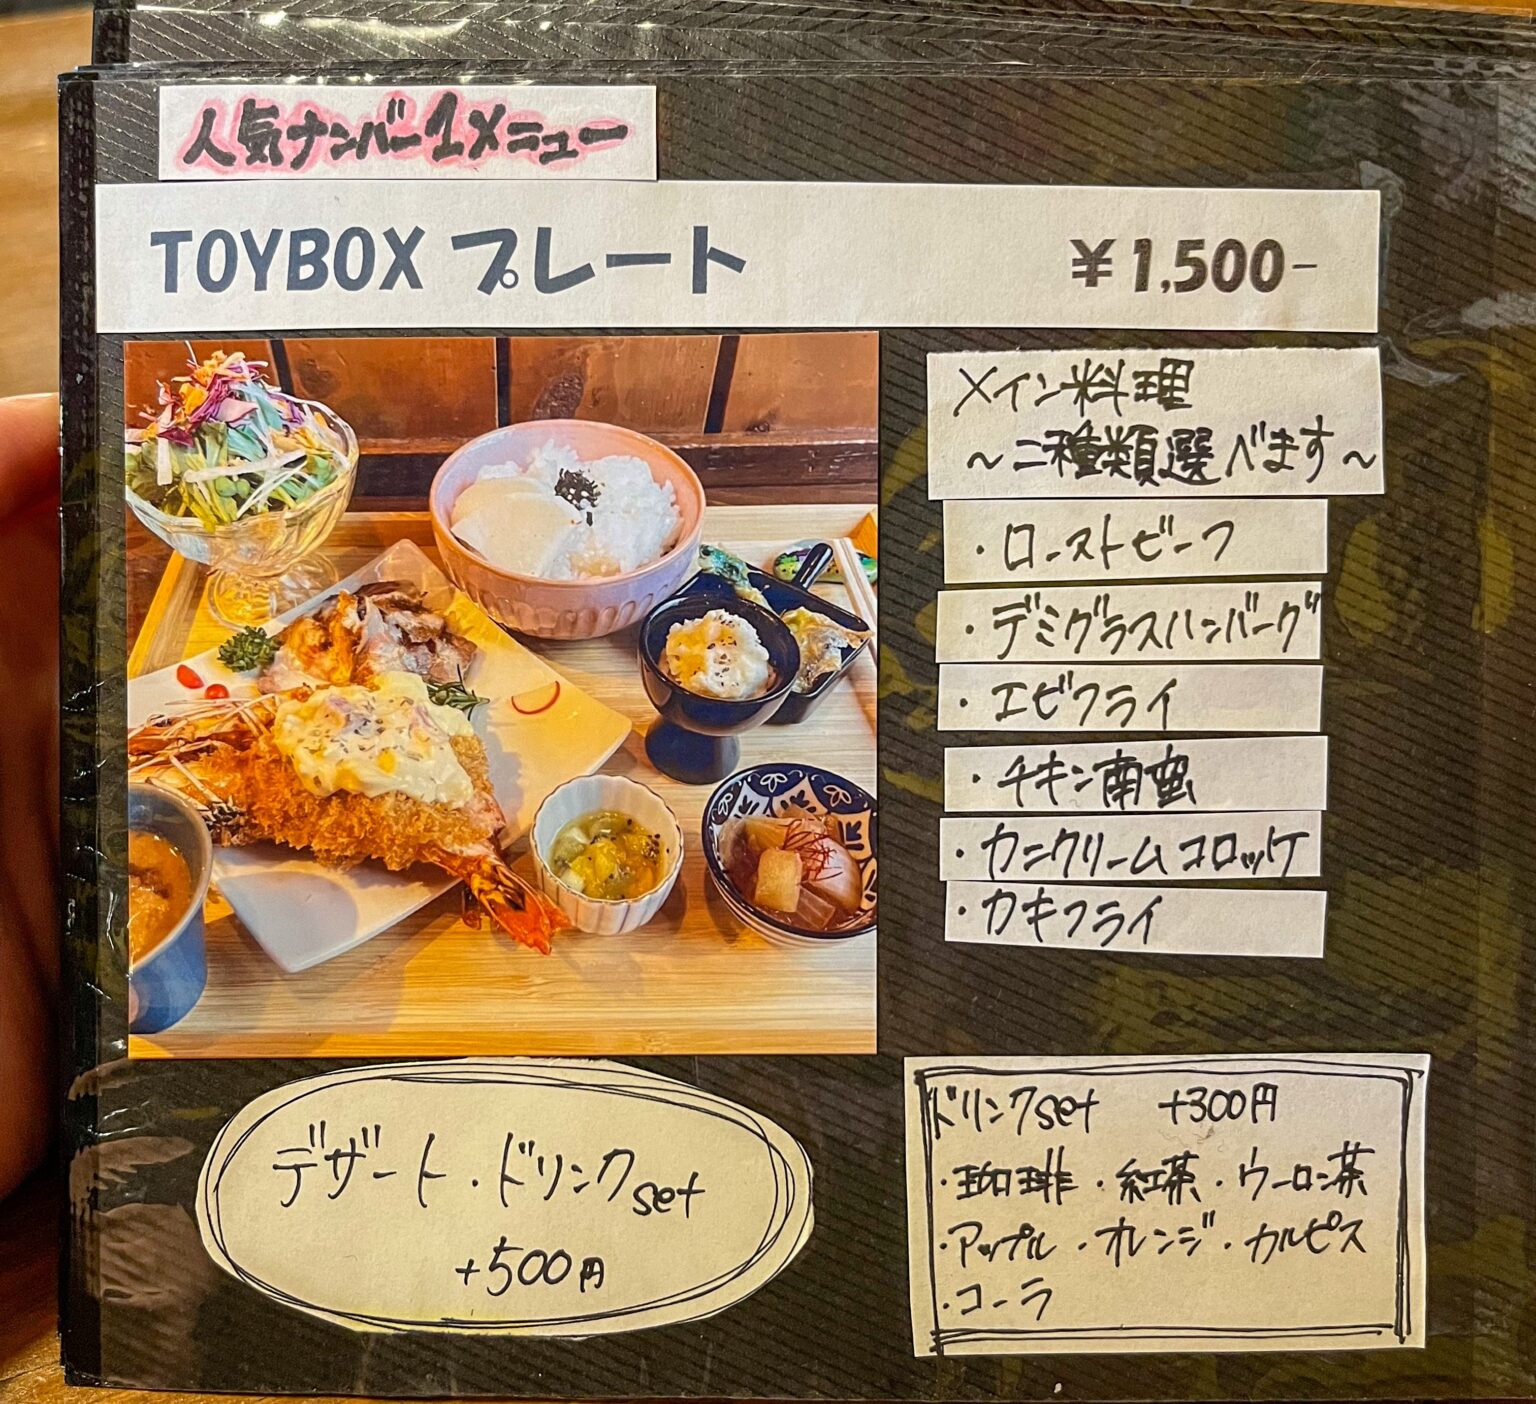 人気ナンバー1メニュー
TOYBOX プレート ¥1,500-
メイン料理
～二種類選べます～
・ローストビーフ
・デミグラスハンバーグ
・エビフライ
・チキン南蛮
・カニクリームコロッケ
・カキフライ
デザート・ドリンクset
+500円
ドリンクset +300円
・珈琲・紅茶・ウーロン茶
・アップル・オレンジ・カルピス
・コーラ